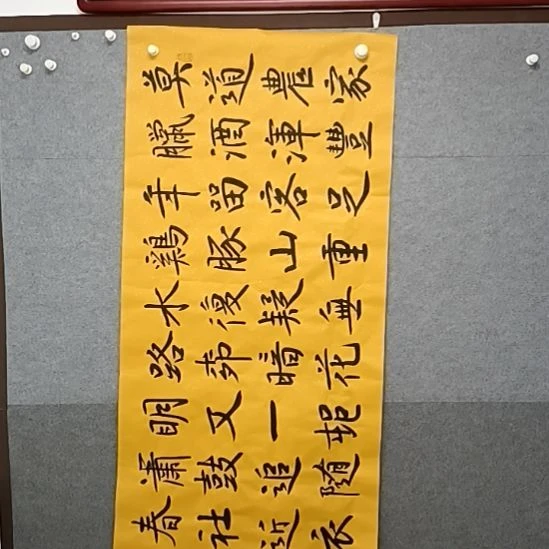 莫道農家
臘酒渾豐
年留客足
鷄豚山重
水復疑無
路柳暗花
明又一邨
蕭鼓追随
春社近衣